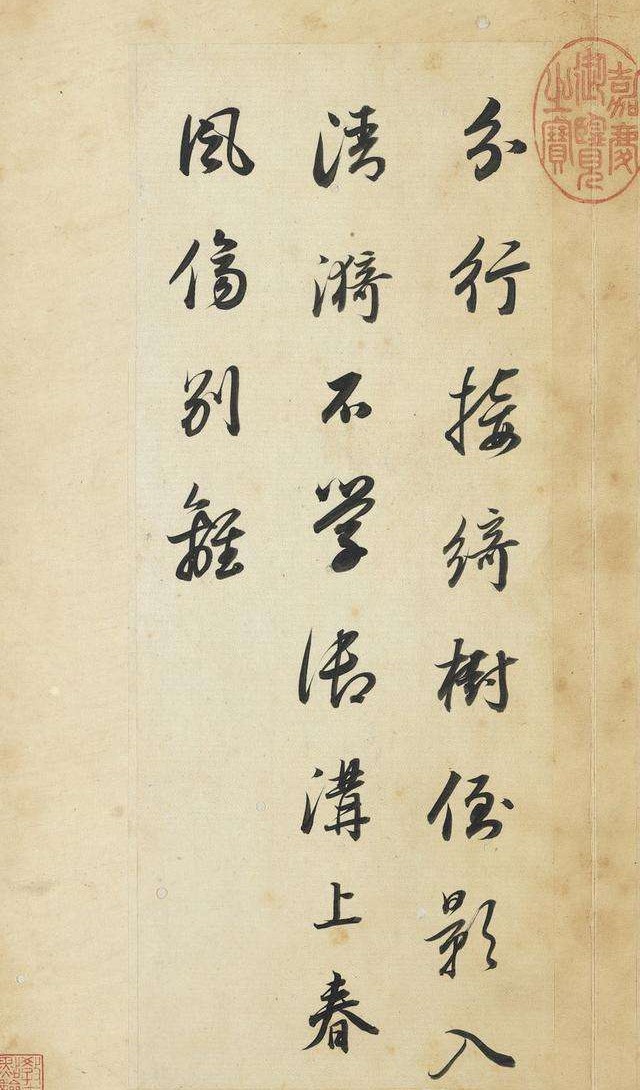 嘉慶
御覽
之寶
分行接綺樹倒影入
清漪不學御溝上春
風傷別離